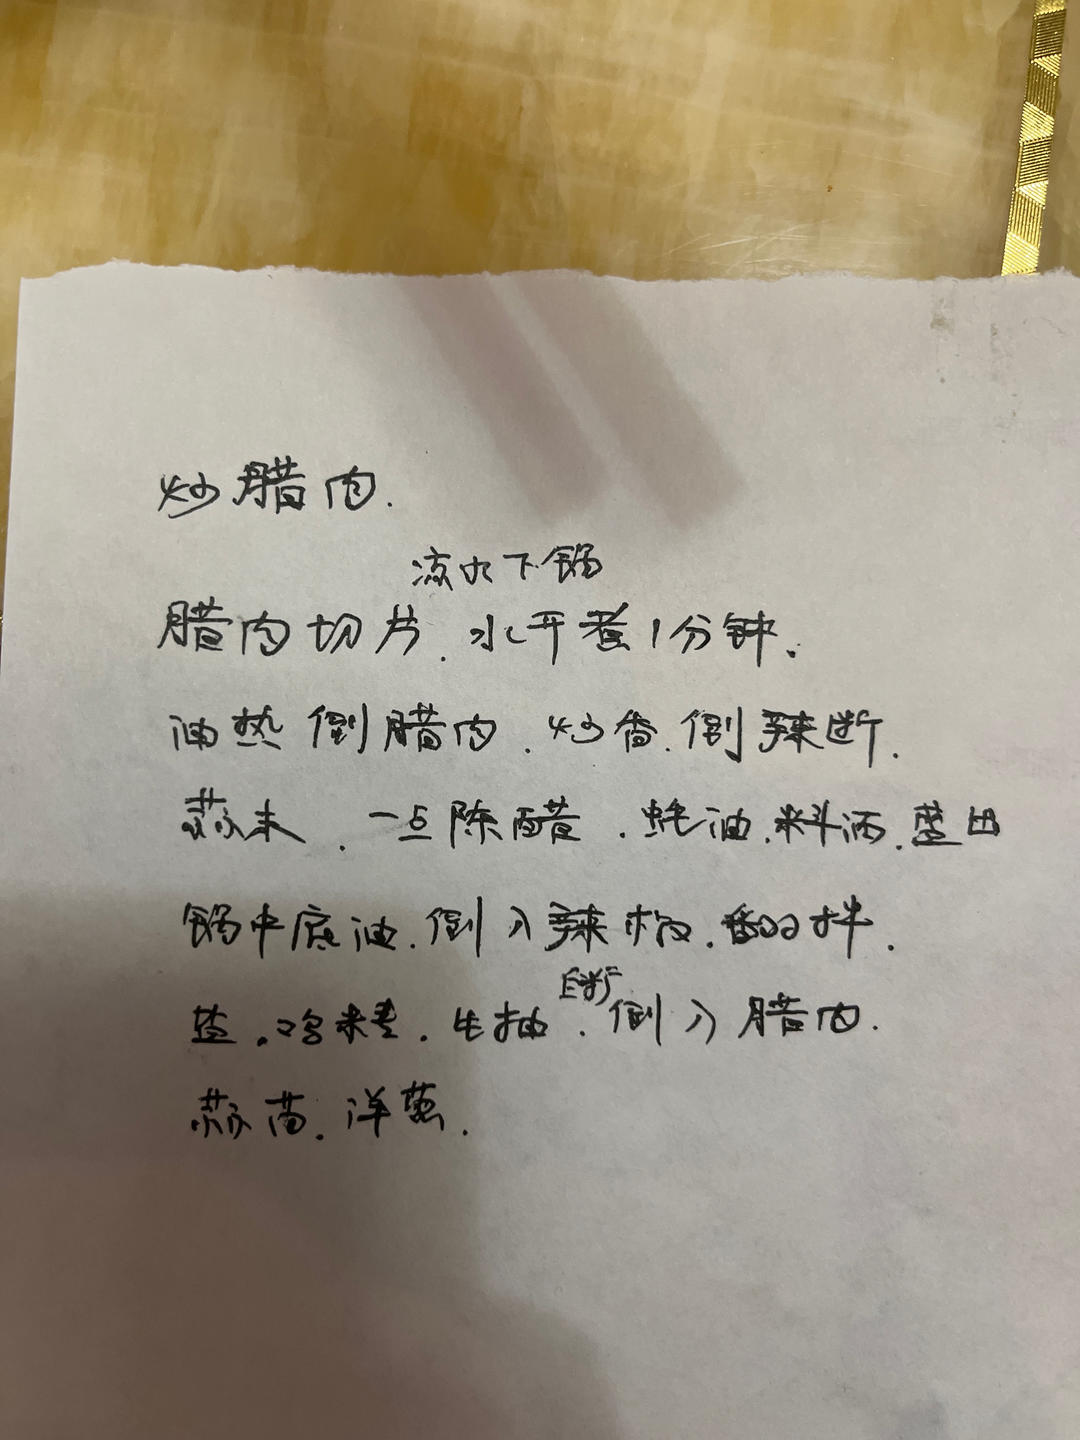 炒腊肉.
凉水下锅
腊肉切片.水开煮1分钟.
油热倒腊肉.炒香.倒辣断.
蒜末.一点陈醋.蚝油.料酒.盛出
锅中底油.倒入辣椒.翻拌.
白糖
盐.鸡精.生抽.倒入腊肉.
蒜苗.洋葱.